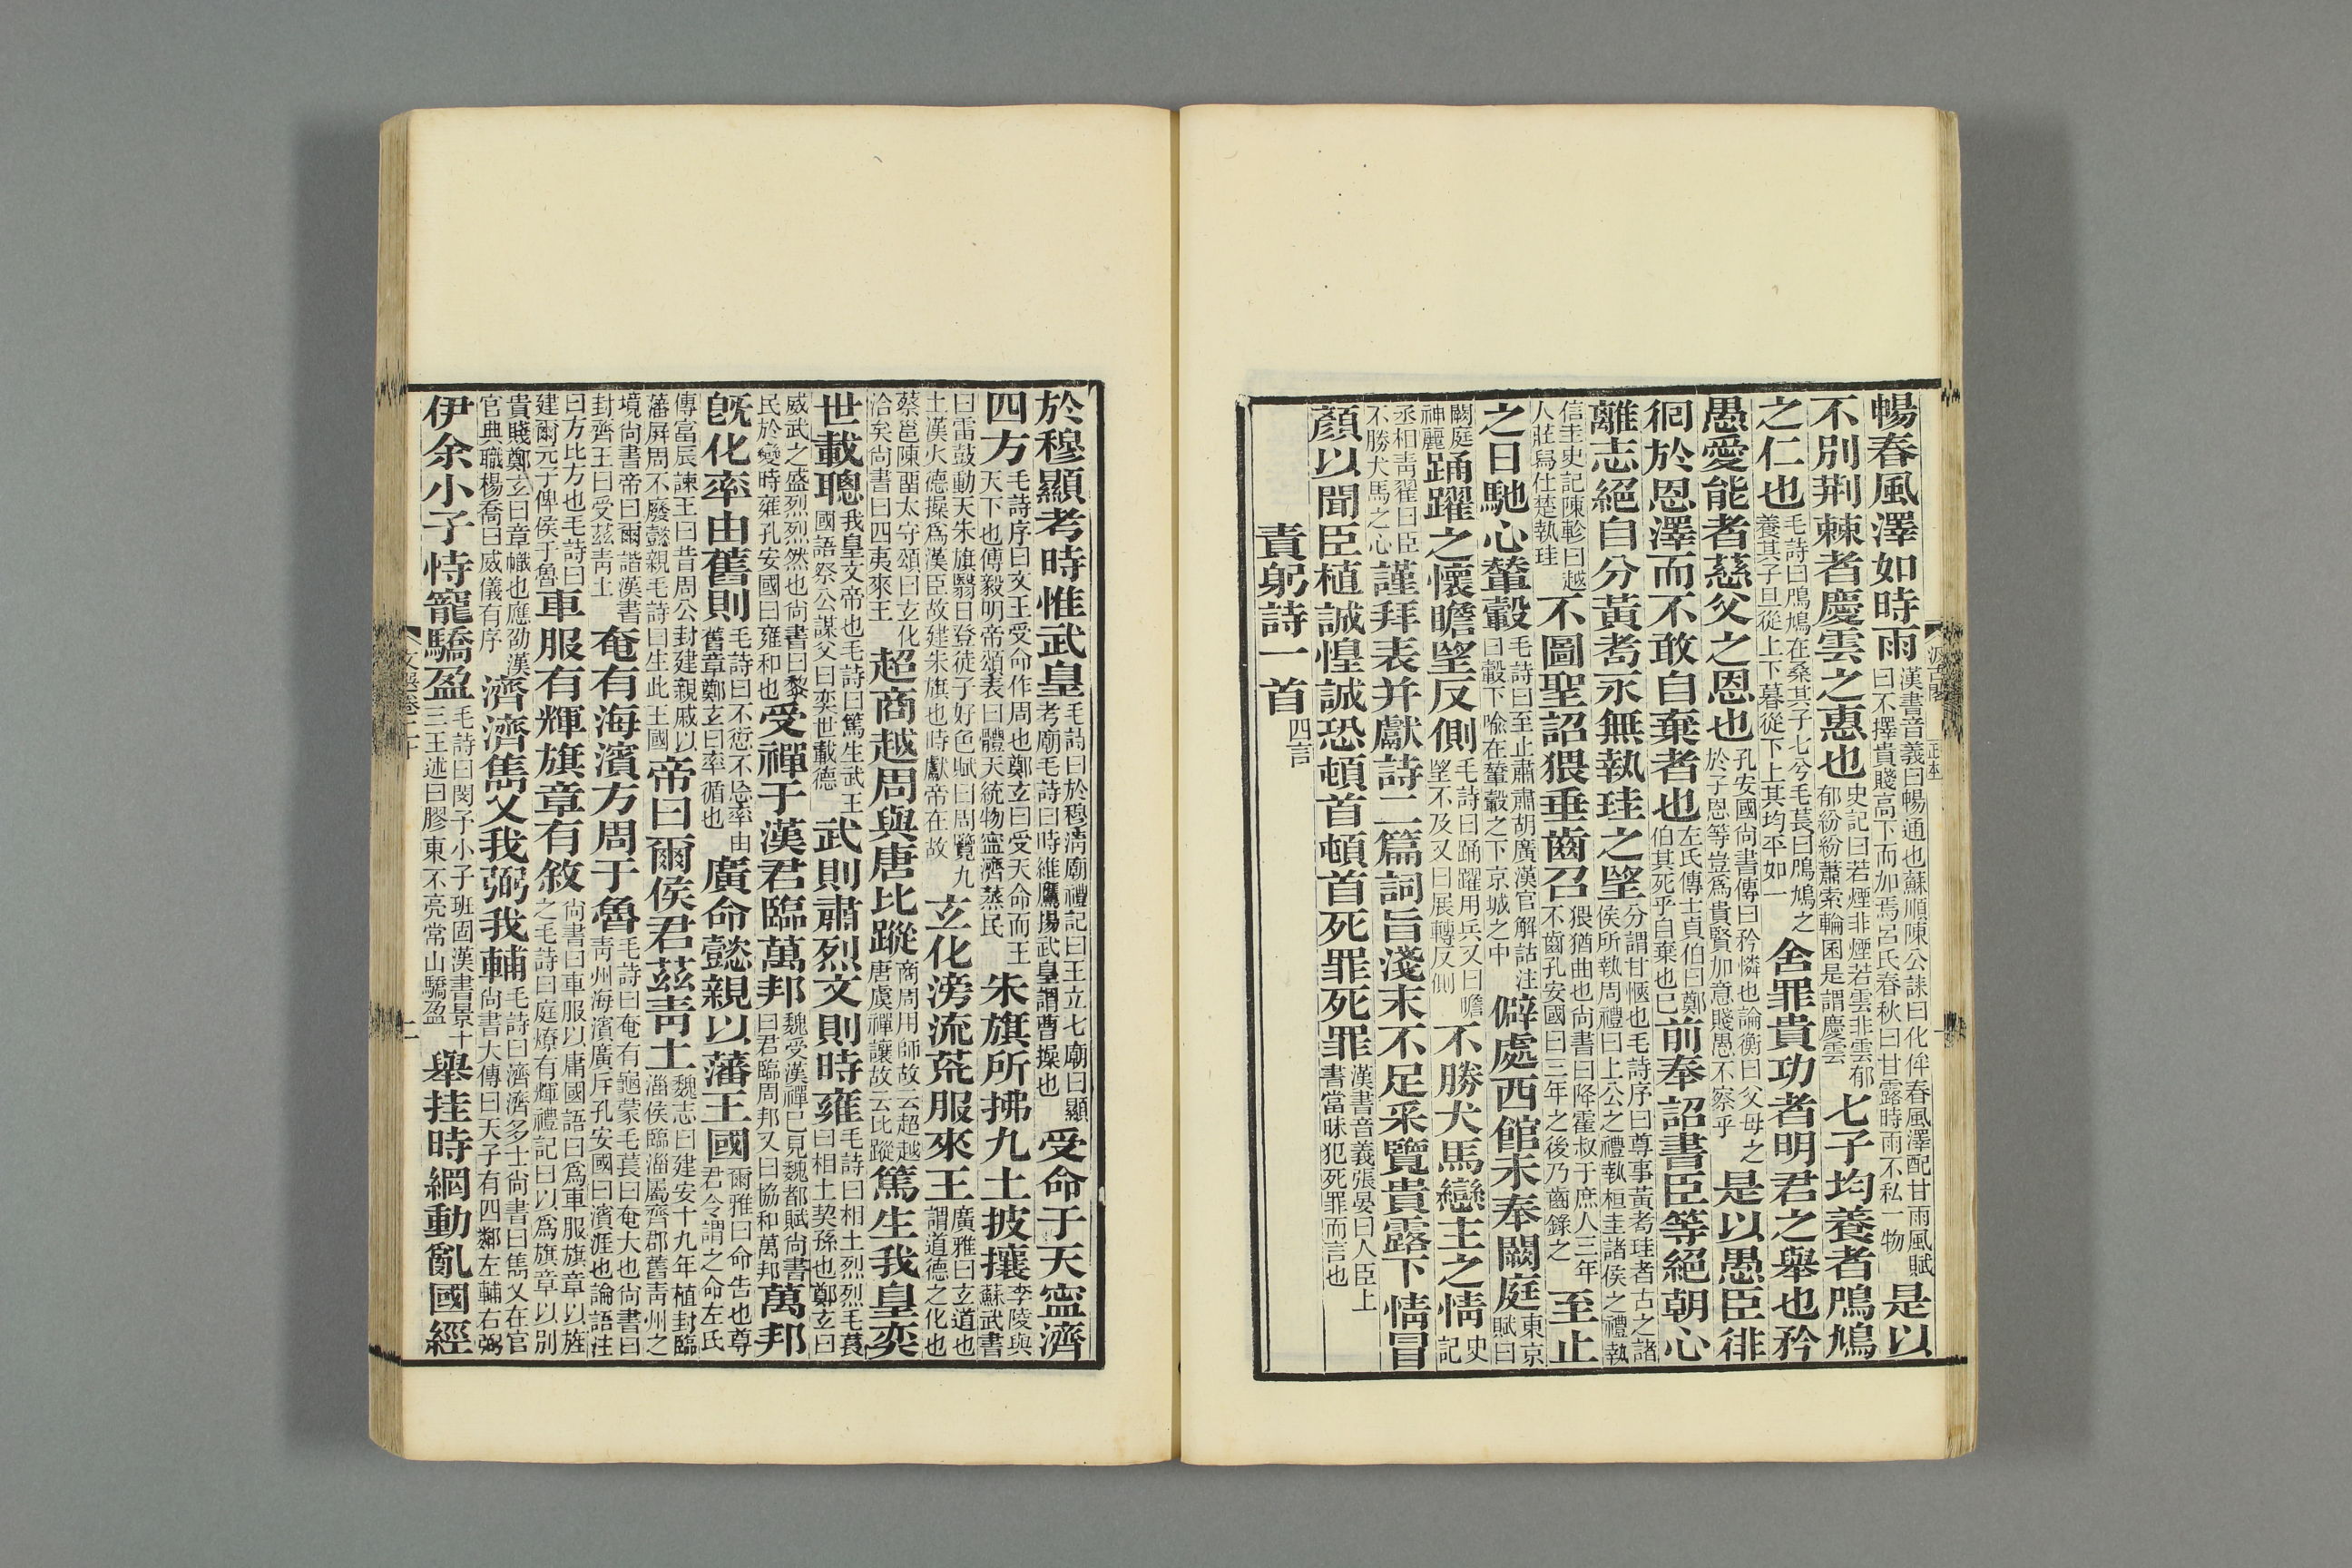 暢春風澤如時雨漢書音義曰暢通也蘇順陳公誄曰化侔春風澤配甘雨風賦曰不擇貴賤高下而加焉呂氏春秋曰甘露時雨不私一物是以
不別荆棘者慶雲之惠也史記曰若煙非煙若雲非雲郁郁紛紛蕭索輪囷是謂慶雲七子均養者鳲鳩
之仁也毛詩曰鳲鳩在桑其子七兮毛萇曰鳲鳩之養其子旦從上下暮從下上其均平如一舍罪責功者明君之舉也矜
愚愛能者慈父之恩也孔安國尚書傳曰矜憐也論衡曰父母之於子恩等豈爲貴賢加意賤愚不察乎是以愚臣徘
徊於恩澤而不敢自棄者也左氏傳士貞伯曰鄭伯其死乎自棄也已前奉詔書臣等絕朝心
離志絕自分黃耇永無執珪之望分謂甘愜也毛詩序曰尊事黃耇珪者古之諸侯所執周禮曰上公之禮執桓圭諸侯之禮執
信圭史記陳軫曰越人莊舄仕楚執珪不圖聖詔猥垂齒召猥猶曲也尚書曰降霍叔于庶人三年不齒孔安國曰三年之後乃齒錄之至止
之日馳心輦轂毛詩曰至止肅肅胡廣漢官解詁注曰轂下喻在輦轂之下京城之中僻處西館未奉闕庭東京賦曰
闕庭神麗踊躍之懷瞻望反側毛詩曰踊躍用兵又曰瞻望不及又曰展轉反側不勝犬馬戀主之情史記
丞相靑翟曰臣不勝犬馬之心謹拜表并獻詩二篇詞旨淺末不足采覽貴露下情冒
顏以聞臣植誠惶誠恐頓首頓首死罪死罪漢書音義張晏曰人臣上書當昧犯死罪而言也
責躬詩一首四言
於穆顯考時惟武皇毛詩曰於穆淸廟禮記曰王立七廟曰顯考廟毛詩曰時維鷹揚武皇謂曹操也受命于天寧濟
四方毛詩序曰文王受命作周也鄭玄曰受天命而王天下也傅毅明帝頌表曰體天統物寧濟蒸民朱旗所拂九土披攘李陵與蘇武書
曰雷鼓動天朱旗翳日登徒子好色賦曰周覽九土漢火德操爲漢臣故建朱旗也時獻帝在故玄化滂流荒服來王廣雅曰玄道也謂道德之化也
蔡邕陳留太守頌曰玄化洽矣尚書曰四夷來王超商越周與唐比蹤商周用師故云超越唐虞禪讓故云比蹤篤生我皇奕
世載聰我皇文帝也毛詩曰篤生武王國語祭公謀父曰奕世載德武則肅烈文則時雍毛詩曰相土烈烈毛萇曰相土契孫也鄭玄曰
威武之盛烈烈然也尚書曰黎民於變時雍孔安國曰雍和也受禪于漢君臨萬邦魏受漢禪已見魏都賦尚書曰君臨周邦又曰協和萬邦萬邦
旣化率由舊則毛詩曰不愆不忘率由舊章鄭玄曰率循也廣命懿親以藩王國爾雅曰命告也尊君令謂之命左氏
傳富辰諫王曰昔周公封建親戚以藩屛周不廢懿親毛詩曰生此王國帝曰爾侯君茲靑土魏志曰建安十九年植封臨淄侯臨淄屬齊郡舊靑州之
境尚書帝曰爾諧漢書封齊王曰受茲靑土奄有海濱方周于魯毛詩曰奄有龜蒙毛萇曰奄大也尚書曰靑州海濱廣斥孔安國曰濱涯也論語注
曰方比方也毛詩曰建爾元子俾侯于魯車服有輝旗章有敘尚書曰車服以庸國語曰爲車服旗章以旌之毛詩曰庭燎有輝禮記曰以爲旗章以別
貴賤鄭玄曰章幟也應劭漢官典職楊喬曰威儀有序濟濟雋乂我弼我輔毛詩曰濟濟多士尚書曰雋乂在官尚書大傳曰天子有四鄰左輔右弼
伊余小子恃寵驕盈毛詩曰閔子小子班固漢書景十三王述曰膠東不亮常山驕盈舉挂時網動亂國經
文選卷二十
二